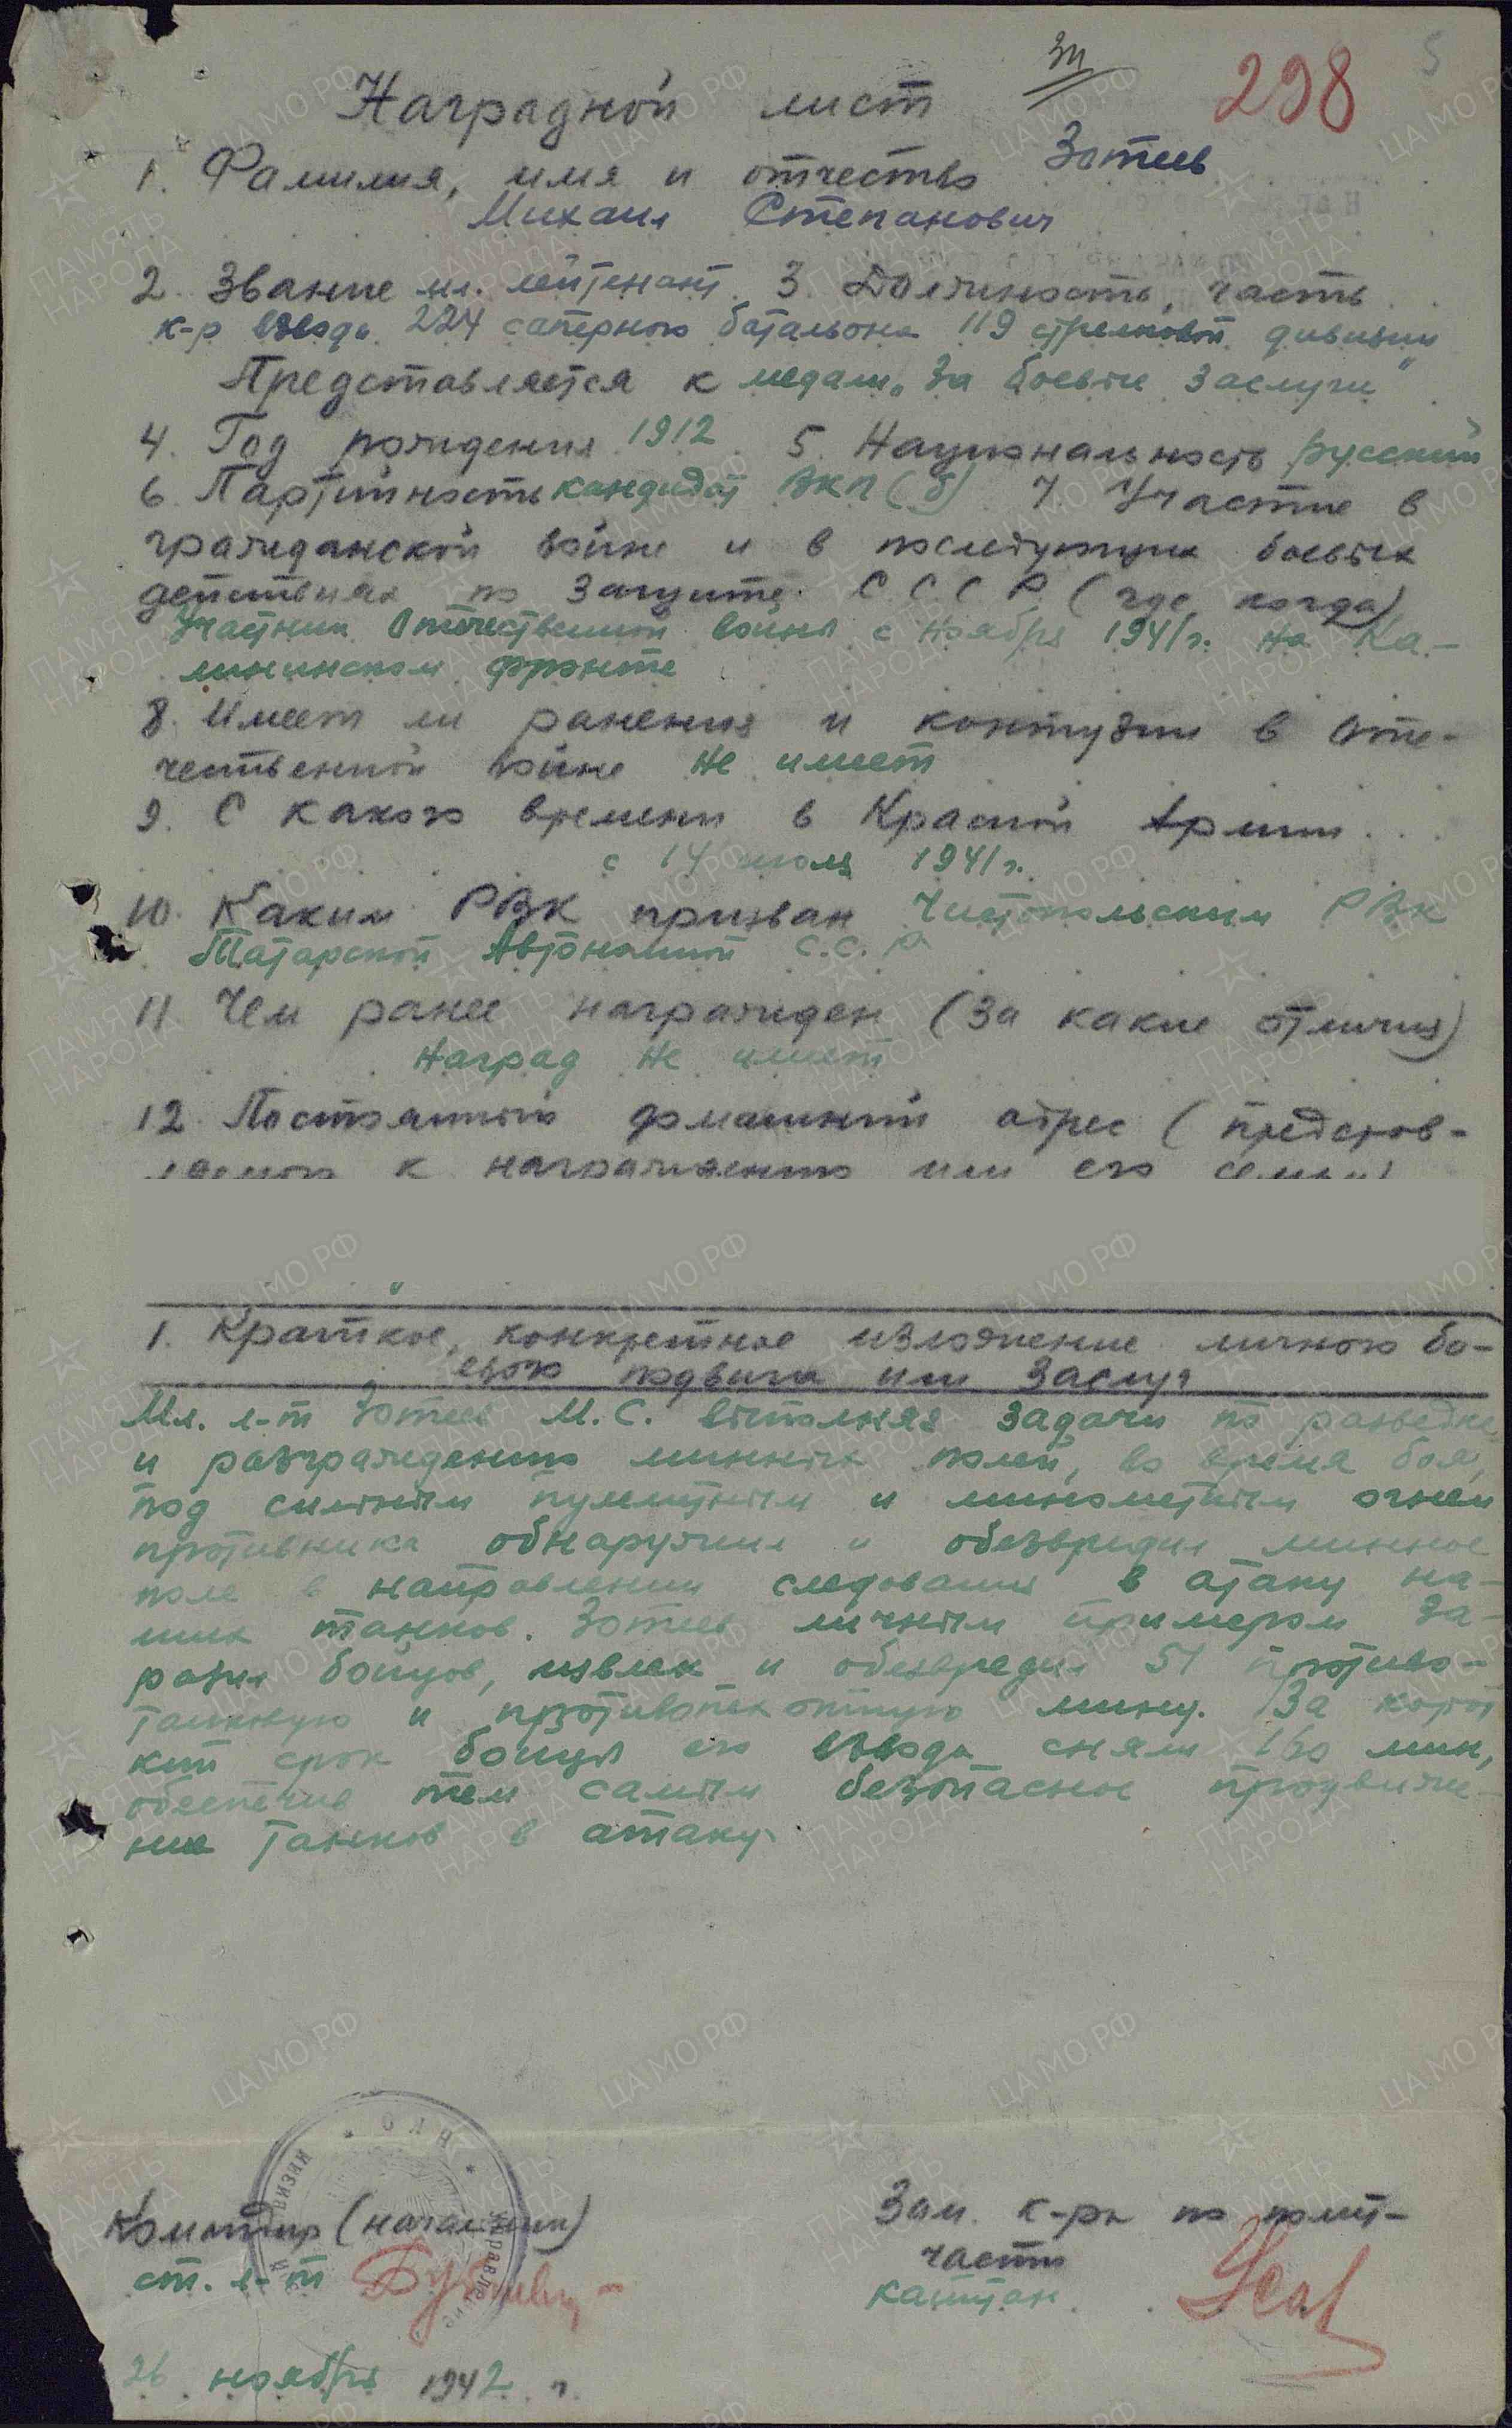 298
5
Наградной лист
1. Фамилия, имя и отчество Зотеев
Михаил Степанович
2. Звание мл. лейтенант 3. Должность, часть
к-р взвода 224 саперного батальона 119 стрелковой дивизии
Представляется к медали „За боевые заслуги"
4. Год рождения 1912 5. Национальность русский
6. Партийность кандидат ВКП(б) 7 Участие в
гражданской войне и в последующих боевых
действиях по защите С.С.С.Р. (где, когда)
Участник Отечественной войны с ноября 1941 г. на Ка-
лининском фронте
8. Имеет ли ранения и контузии в Оте-
чественной войне Не имеет
9. С какого времени в Красной Армии...
с 14 июля 1941 г.
10. Каким РВК призван Чистопольским РВК
Татарской Автономной С.С.Р.
11 Чем ранее награжден (за какие отличия)
Наград не имеет
12. Постоянный домашний адрес (представ-
ляемого к награждению или его семьи)
1. Краткое, конкретное изложение личного бо-
евого подвига или заслуг
Мл. л-т Зотеев М.С. выполняя задачи по разведке
и разграждению минных полей, во время боя,
под сильным пулеметным и минометным огнем
противника обнаружил и обезвредил минное
поле в направлении следования в атаку на-
ших танков. Зотеев личным примером за-
разил бойцов, извлек и обезвредил 51 противо-
танковую и противопехотную мину. За корот
кий срок бойцы его взвода сняли мин,
обеспечив тем самым безопасное продвиже-
ние танков в атаку.
Командир (начальник)
ст. л-т
Зам. к-ра по полит-
части
капитан
26 ноября 1942 г.